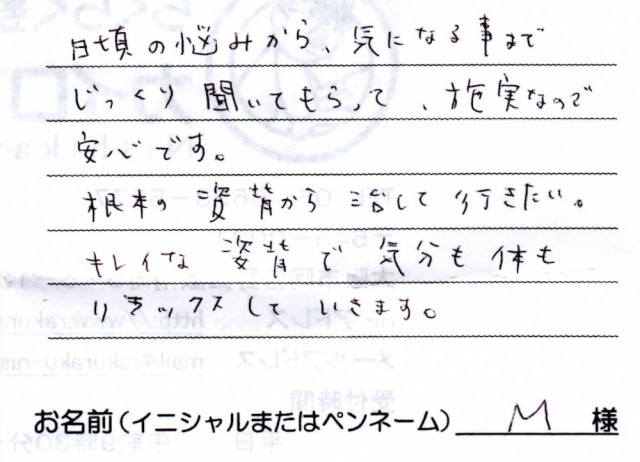 日頃の悩みから、気になる事まで
じっくり聞いてもらって、施実なので
安心です。
根本の姿背から治して行きたい。
キレイな姿背で気分も体も
リラックスしていきます。
お名前(イニシャルまたはペンネーム) M 様